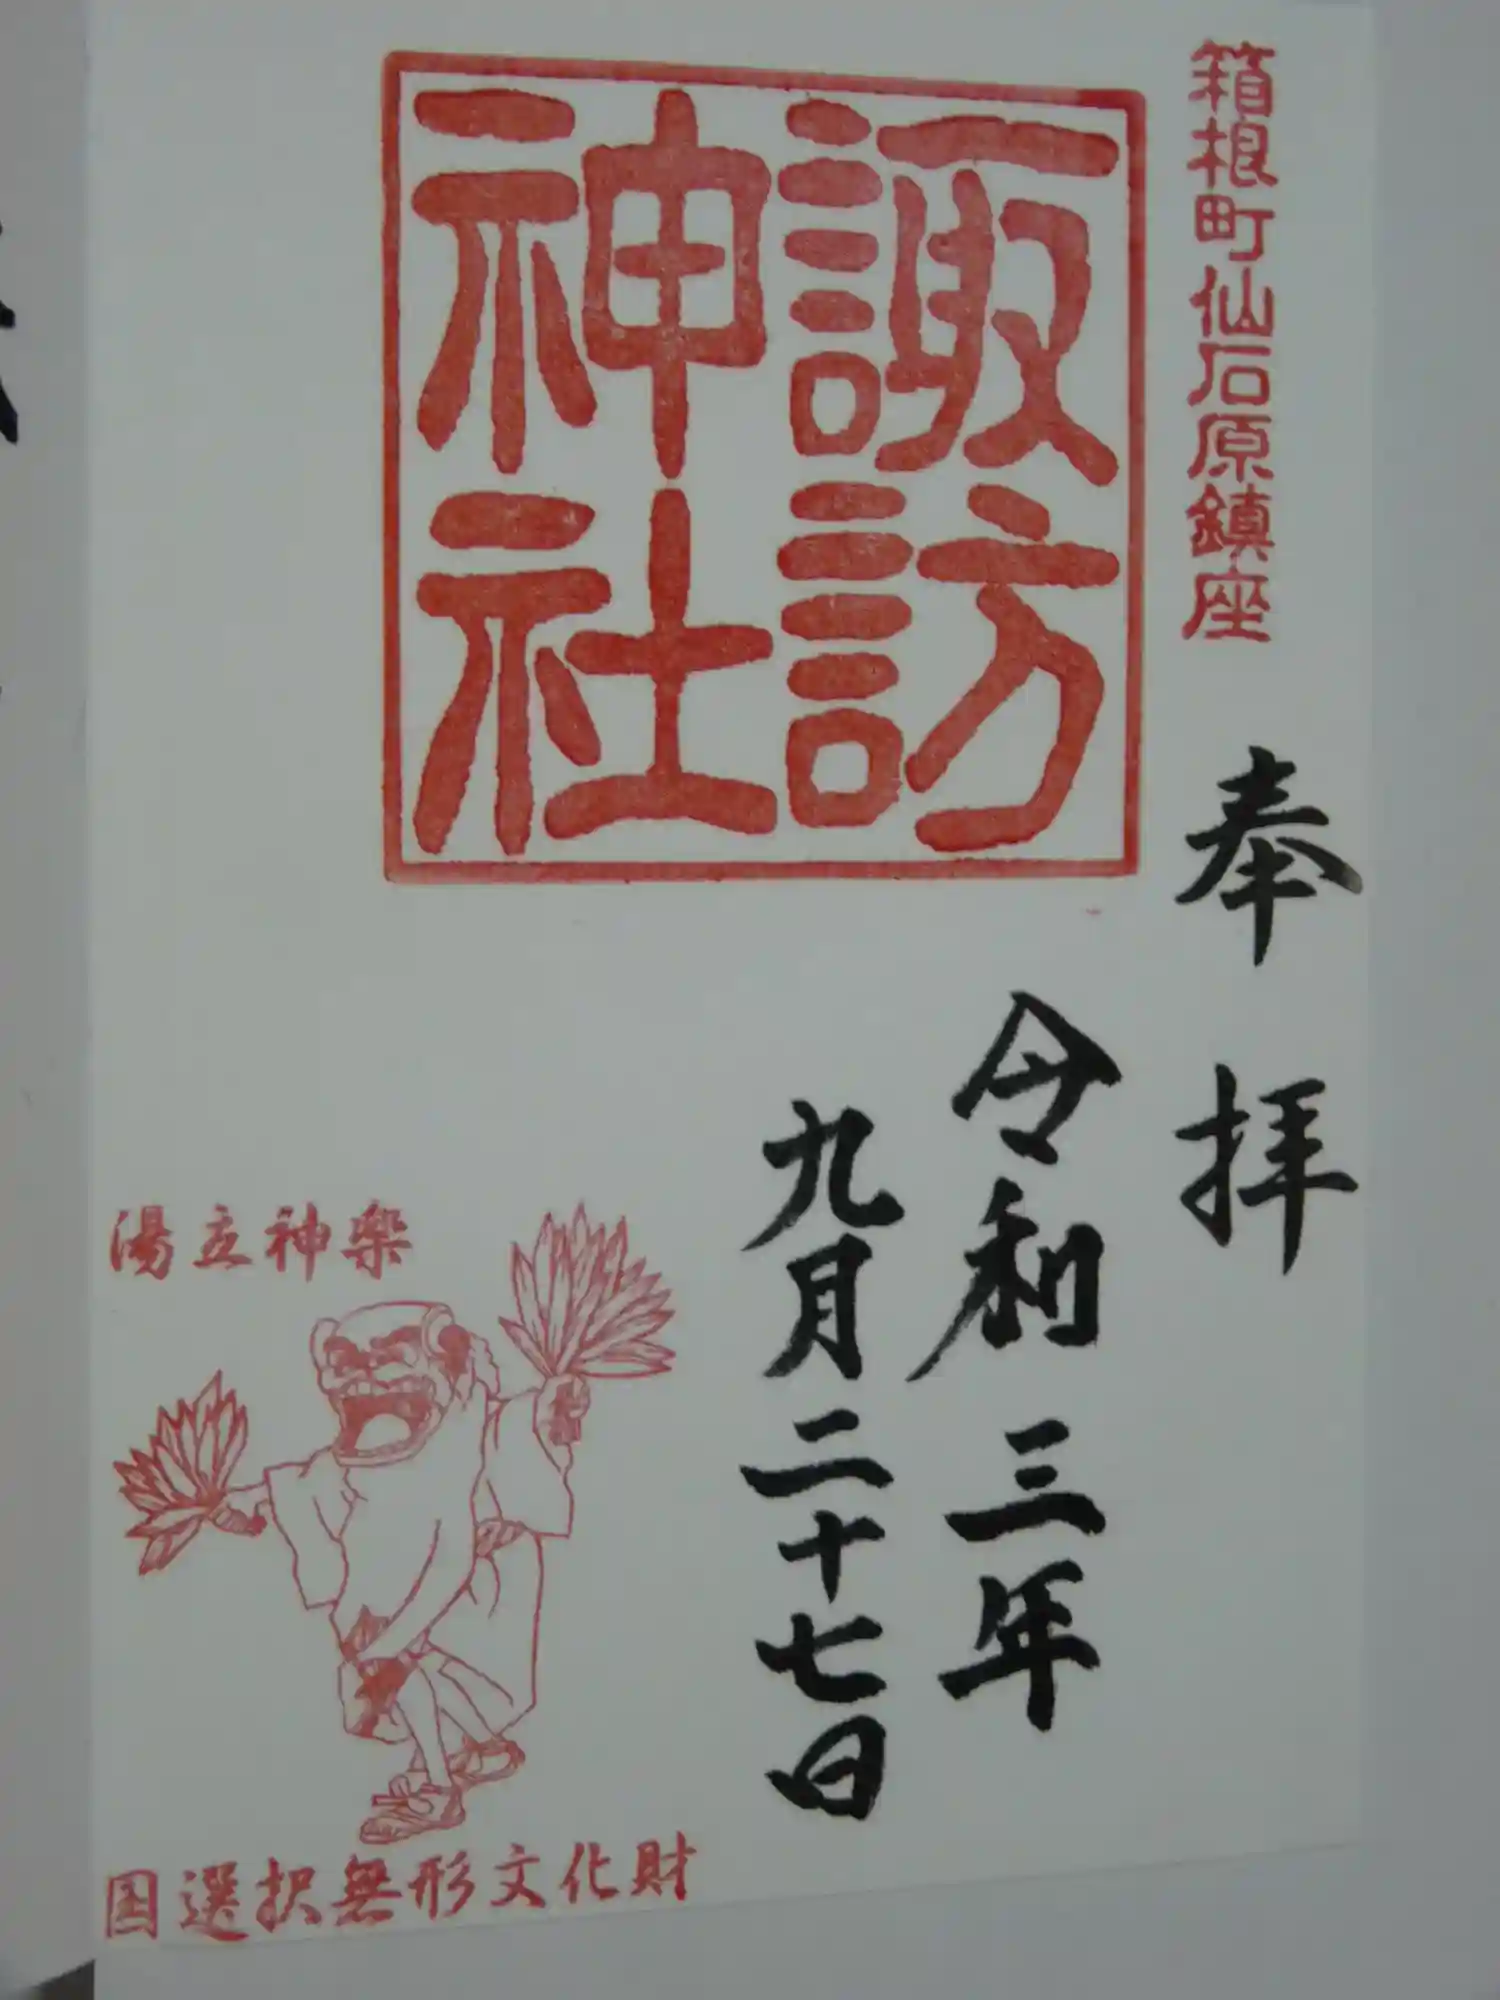 箱根町仙石原鎮座
奉拝
諏訪
神社
令和三年
九月二十七日
湯立神楽
国選択無形文化財